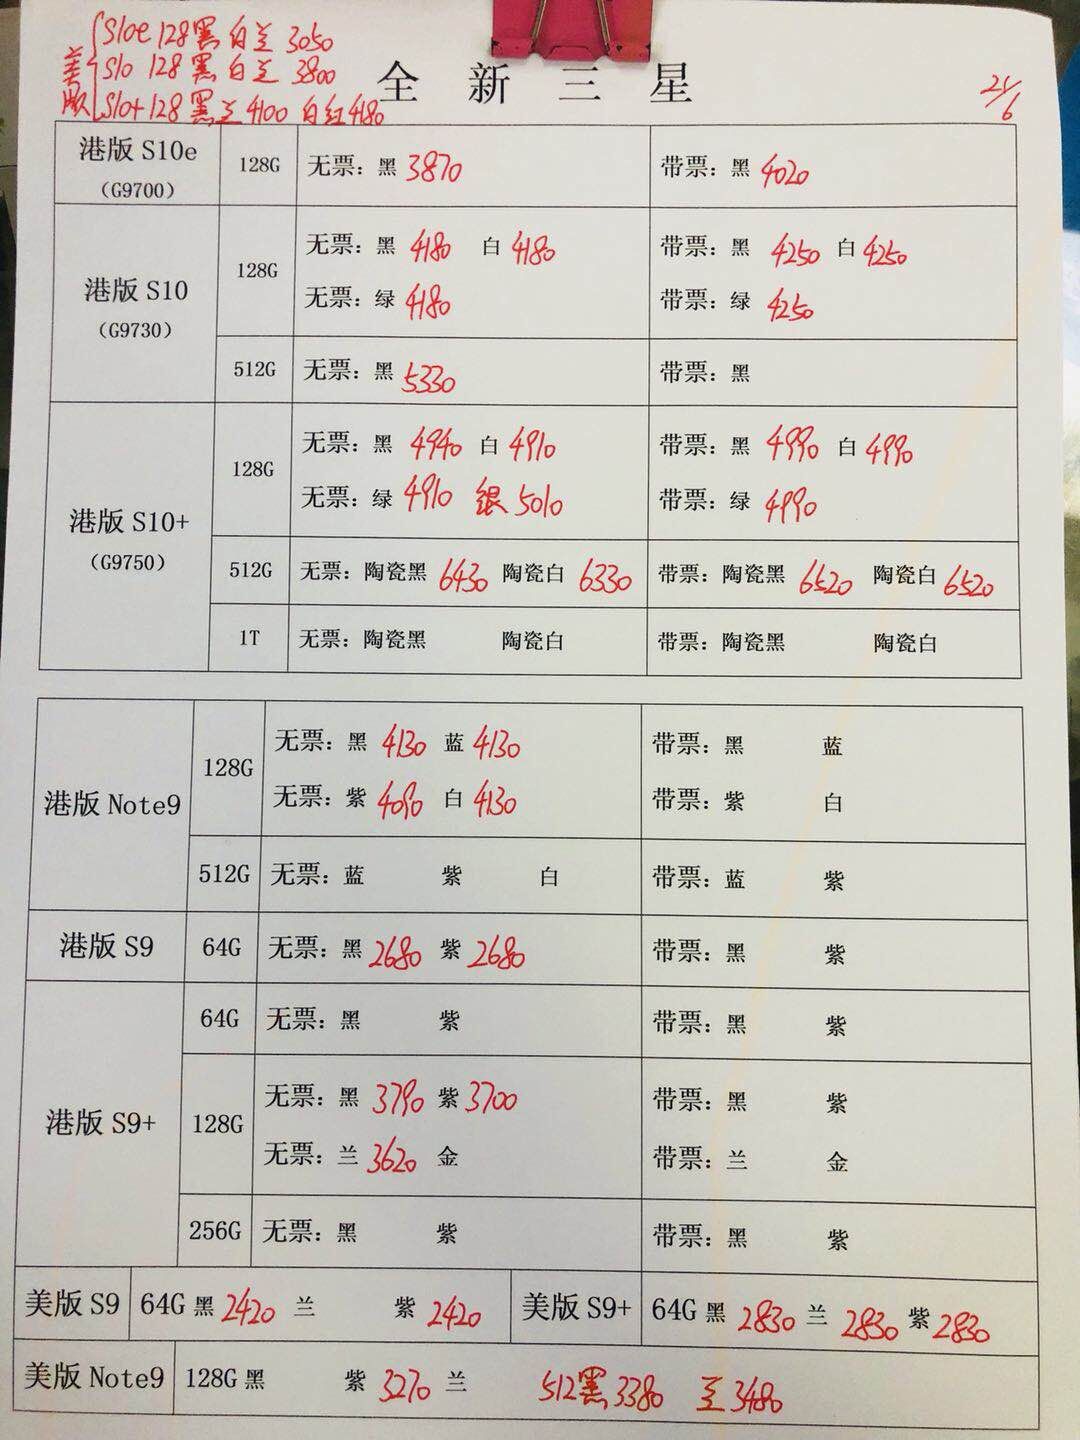 S10e 128黑 白兰 3050
美版 S10 128黑 白兰 3800
S10+ 128黑兰4100 白红4180
全新三星
25/6
港版 S10e
(G9700)
128G 无票：黑 3870 带票：黑 4020
港版 S10
(G9730)
128G 无票：黑 4180 白 4180 带票：黑 4250 白 4250
无票：绿 4180 带票：绿 4250
512G 无票：黑 5330 带票：黑
港版 S10+
(G9750)
128G 无票：黑 4940 白 4910 带票：黑 4990 白 4990
无票：绿 4910 银 5010 带票：绿 4990
512G 无票：陶瓷黑 6430 陶瓷白 6330 带票：陶瓷黑 6520 陶瓷白 6520
1T 无票：陶瓷黑 陶瓷白 带票：陶瓷黑 陶瓷白
港版 Note9
128G 无票：黑 4130 蓝 4130 带票：黑 蓝
无票：紫 4090 白 4130 带票：紫 白
512G 无票：蓝 紫 白 带票：蓝 紫
港版 S9 64G 无票：黑 2680 紫 2680 带票：黑 紫
港版 S9+
64G 无票：黑 紫 带票：黑 紫
128G 无票：黑 3790 紫 3700 带票：黑 紫
无票：兰 3620 金 带票：兰 金
256G 无票：黑 紫 带票：黑 紫
美版 S9 64G 黑 2420 兰 紫 2420 美版 S9+ 64G 黑 2830 兰 2830 紫 2830
美版 Note9 128G 黑 紫 3270 兰 512黑3380 兰3480